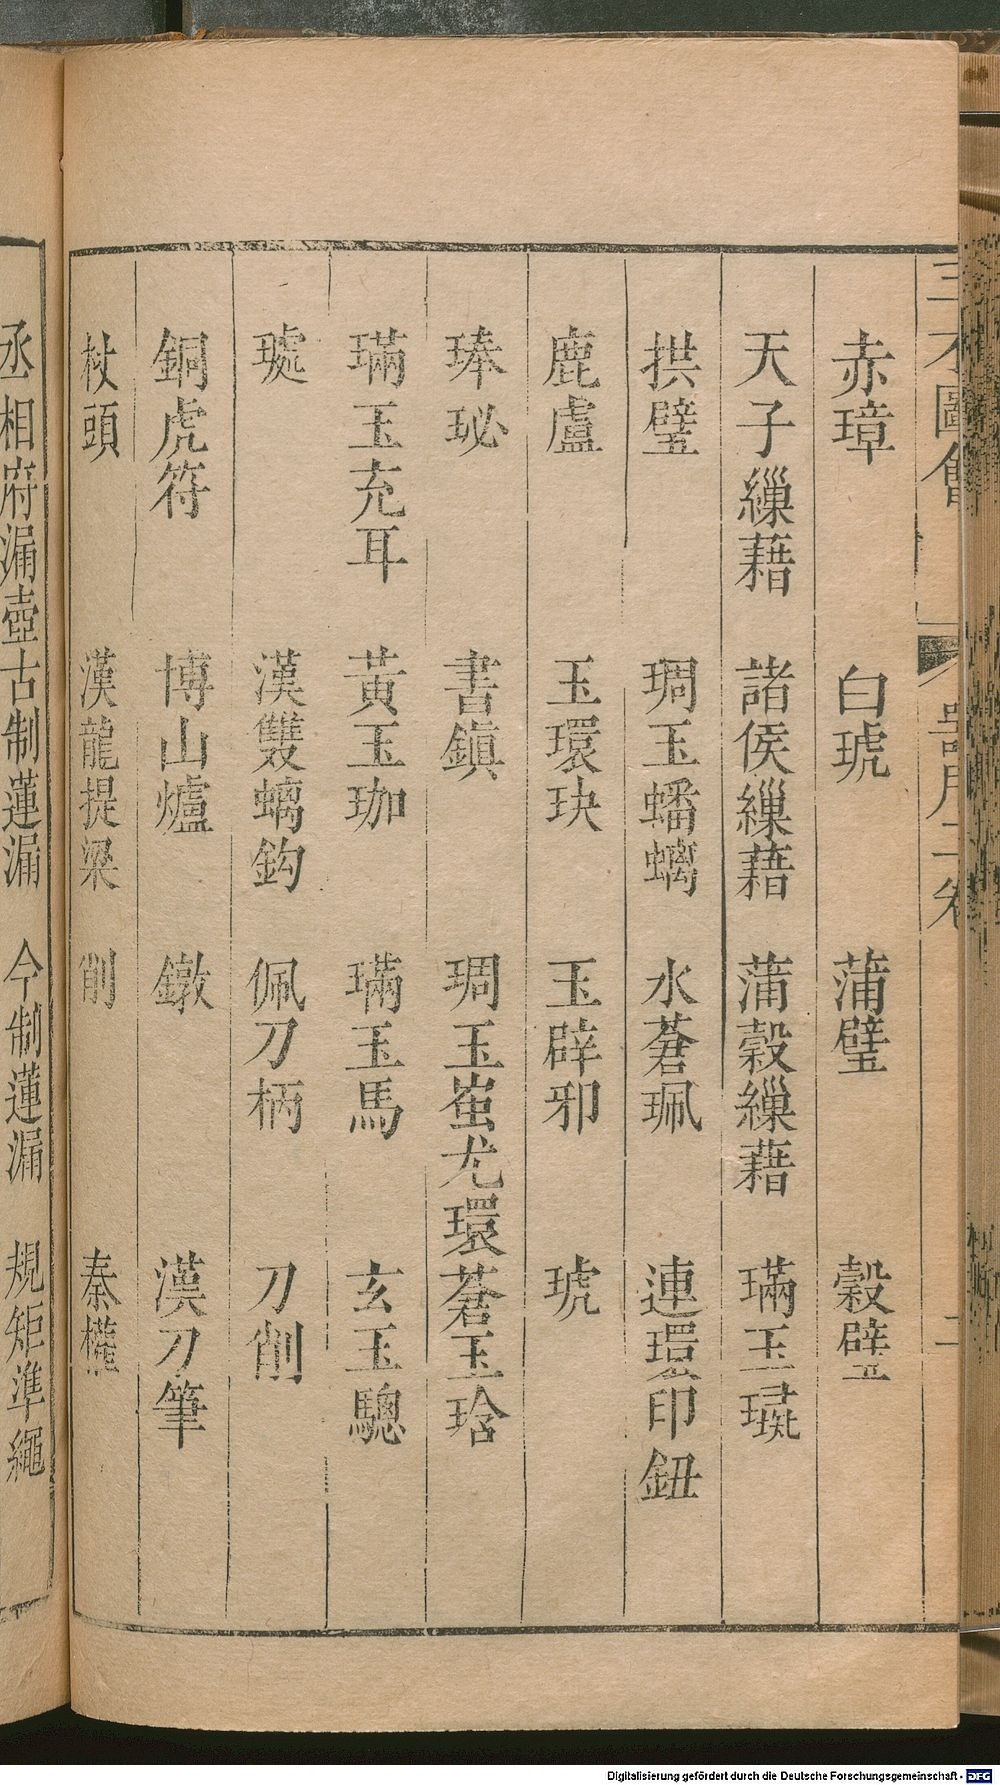 三才圖會 器用二卷 二
赤璋 白琥 蒲璧 穀璧
天子繅藉 諸侯繅藉 蒲穀繅藉 璊玉璏
拱璧 琱玉蟠螭 水蒼珮 連環印鈕
鹿盧 玉環玦 玉辟邪 琥
琫珌 書鎮 琱玉蚩尤環 蒼玉琀
璊玉充耳 黃玉珈 璊玉馬 玄玉驄
琥 漢雙螭鈎 佩刀柄 刀削
銅虎符 博山爐 鐓 漢刀筆
杖頭 漢龍提梁 削 秦權
丞相府漏壺 古制蓮漏 今制蓮漏 規矩準繩
Digitalisierung gefördert durch die Deutsche Forschungsgemeinschaft - DFG